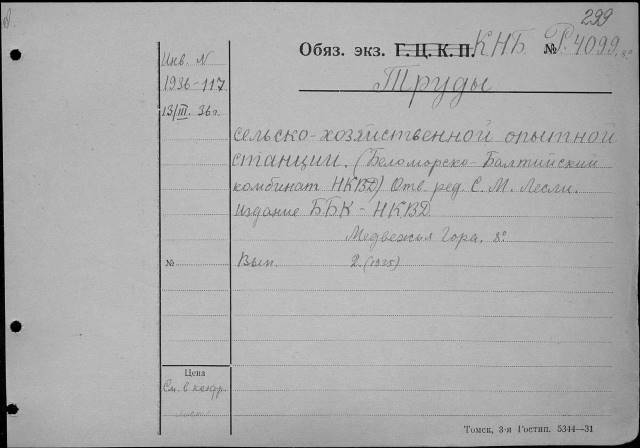 299
Обяз. экз. Г. Ц. К. П. КНБ № Р. 4099 8°
Инв. N
1936-117
13/III. 36 г.
Труды
сельско-хозяйственной опытной
станции. (Беломорско-Балтийский
комбинат НКВД) Отв. ред. С. М. Лесли.
Издание ББК-НКВД
Медвежья Гора. 8°.
№ Вып. 2. (1935)
Цена
См. в контр.
лист
Томск, 3-я Гостип. 5344—31